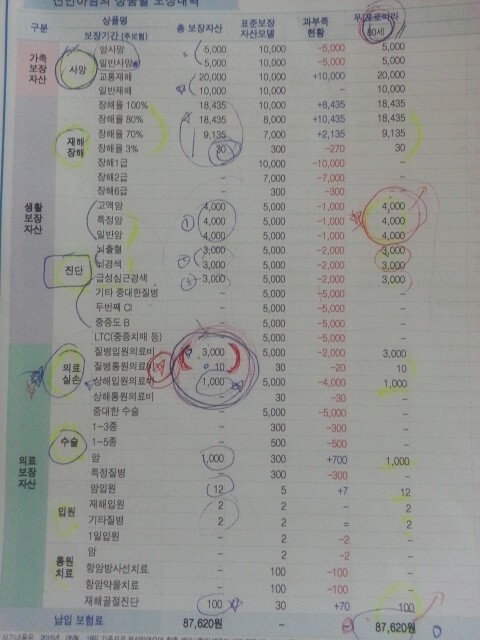 구분 상품명 총 보장자산 표준보장 자산모델 과부족 현황
보장기간 (주보험) 80세
가족 보장 자산
사망
암사망 5,000 10,000 -5,000 5,000
일반사망 5,000 10,000 -5,000 5,000
교통재해 20,000 10,000 +10,000 20,000
일반재해 10,000 10,000 - 10,000
생활 보장 자산
재해 장해
장해율 100% 18,435 10,000 +8,435 18,435
장해율 80% 18,435 8,000 +10,435 18,435
장해율 70% 9,135 7,000 +2,135 9,135
장해율 3% 30 300 -270 30
장해1급 10,000 -10,000 -
장해2급 - 7,000 -7,000 -
장해6급 - 300 -300 -
진단
고액암 4,000 5,000 -1,000 4,000
특정암 4,000 5,000 -1,000 4,000
일반암 4,000 5,000 -1,000 4,000
뇌출혈 3,000 5,000 -2,000 3,000
뇌경색 3,000 5,000 -2,000 3,000
급성심근경색 3,000 5,000 -2,000 -
기타 중대한질병 - 5,000 -5,000 -
두번째 CI - 5,000 -5,000 -
중증도 B - 5,000 -5,000 -
LTC(중증치매 등) 5,000 -5,000
의료 보장 자산
의료 실손
질병입원의료비 3,000 5,000 -2,000 3,000
질병통원의료비 10 30 -20 10
상해입원의료비 1,000 5,000 -4,000 1,000
상해통원의료비 30 -30 -
수술
중대한 수술 - 5,000 -5,000 -
1~3종 - 300 -300 -
1~5종 - 500 -500 -
암 1,000 300 +700 1,000
특정질병 300 -300
입원
암입원 12 5 +7 12
재해입원 2 2 - 2
기타질병 2 2 = 2
1일입원 - 2 -2 -
통원 치료
암 - 2 -2 -
항암방사선치료 - 100 -100 -
항암약물치료 - 100 -100 -
재해골절진단 100 30 +70 100
납입 보험료 87,620원 87,620원